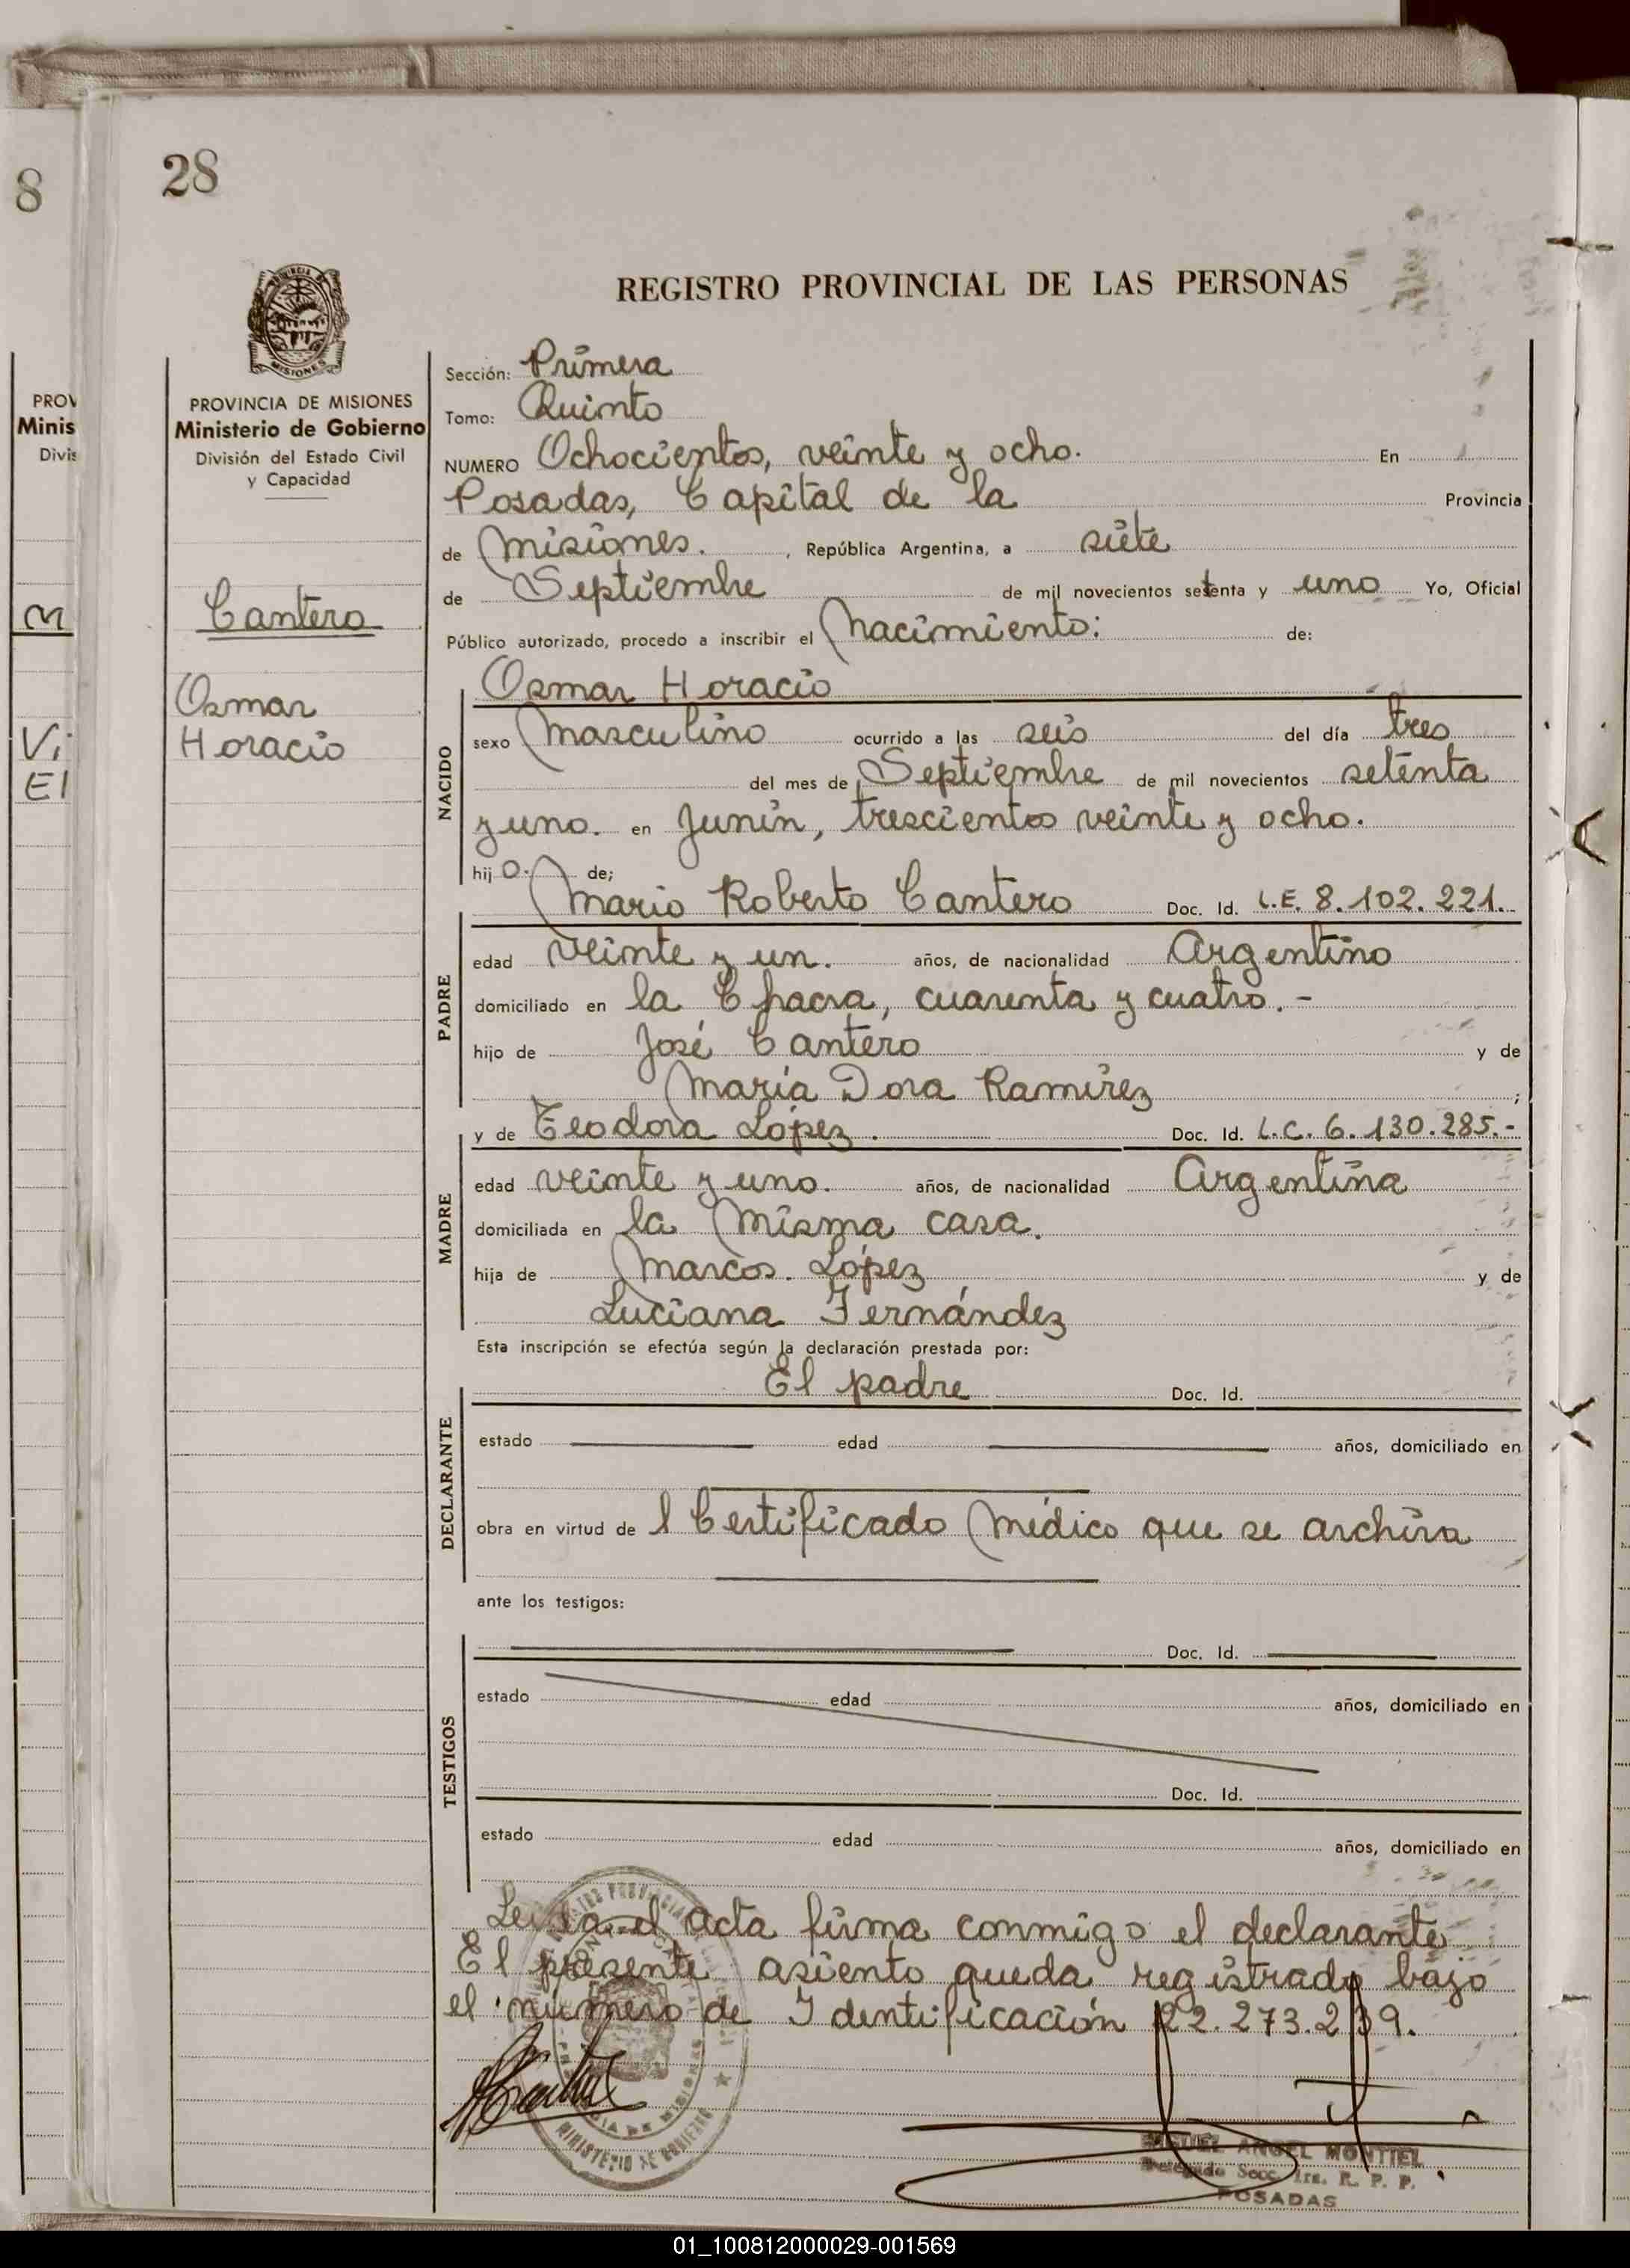 8
28
REGISTRO PROVINCIAL DE LAS PERSONAS
PROVINCIA DE MISIONES
MISIONES
PROVINCIA DE MISIONES
Ministerio de Gobierno
División del Estado Civil
y Capacidad
Cantero
Osmar
Horacio
PROV
Minis
Divis
Vi
El
Sección: Primera
Tomo: Quinto
NUMERO Ochocientos, veinte y ocho. En
Posadas, Capital de la Provincia
de Misiones. , República Argentina, a siete
de Septiembre de mil novecientos setenta y uno Yo, Oficial
Público autorizado, procedo a inscribir el Nacimiento: de:
Osmar Horacio
NACIDO
sexo Masculino ocurrido a las seis del día tres
del mes de Septiembre de mil novecientos setenta
y uno. en Junín, trescientos veinte y ocho.
hij o. de;
Mario Roberto Cantero Doc. Id. L.E. 8.102.221.
PADRE
edad veinte y un. años, de nacionalidad Argentino
domiciliado en la Chacra, cuarenta y cuatro. -
hijo de José Cantero y de
María Dora Ramírez ;
y de Teodora López. Doc. Id. L.C. 6.130.285.-
MADRE
edad veinte y uno. años, de nacionalidad Argentina
domiciliada en la Misma casa.
hija de Marcos. López y de
Luciana Fernández
Esta inscripción se efectúa según la declaración prestada por:
El padre Doc. Id.
DECLARANTE
estado edad años, domiciliado en
obra en virtud de l Certificado Médico que se archiva
ante los testigos:
Doc. Id.
TESTIGOS
estado edad años, domiciliado en
Doc. Id.
estado edad años, domiciliado en
Leída el acta firma conmigo el declarante
El presente asiento queda registrado bajo
el número de Identificación 22.273.239.
MINISTERIO DE GOBIERNO
MIGUEL ANGEL MONTIEL
Delegado Secc. 1ra. R. P. P.
POSADAS
01_100812000029-001569